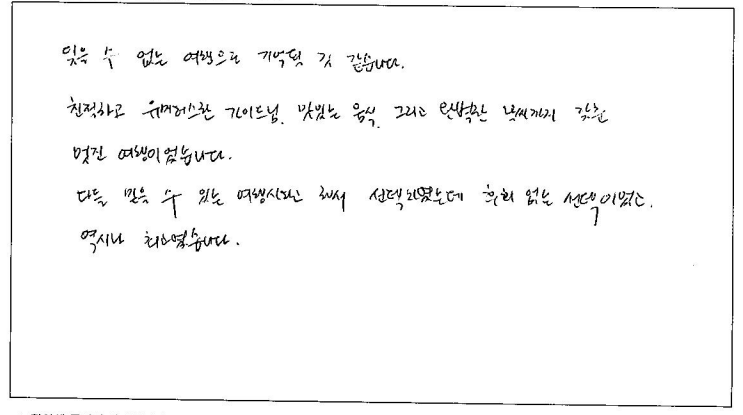 잊을 수 없는 여행으로 기억될 것 같습니다.
친절하고 유머러스한 가이드님, 맛있는 음식, 그리고 완벽한 날씨까지 갖춘
멋진 여행이었습니다.
다들 믿을 수 있는 여행사라고 해서 선택하였는데 후회 없는 선택이었고.
역시나 최고였습니다.